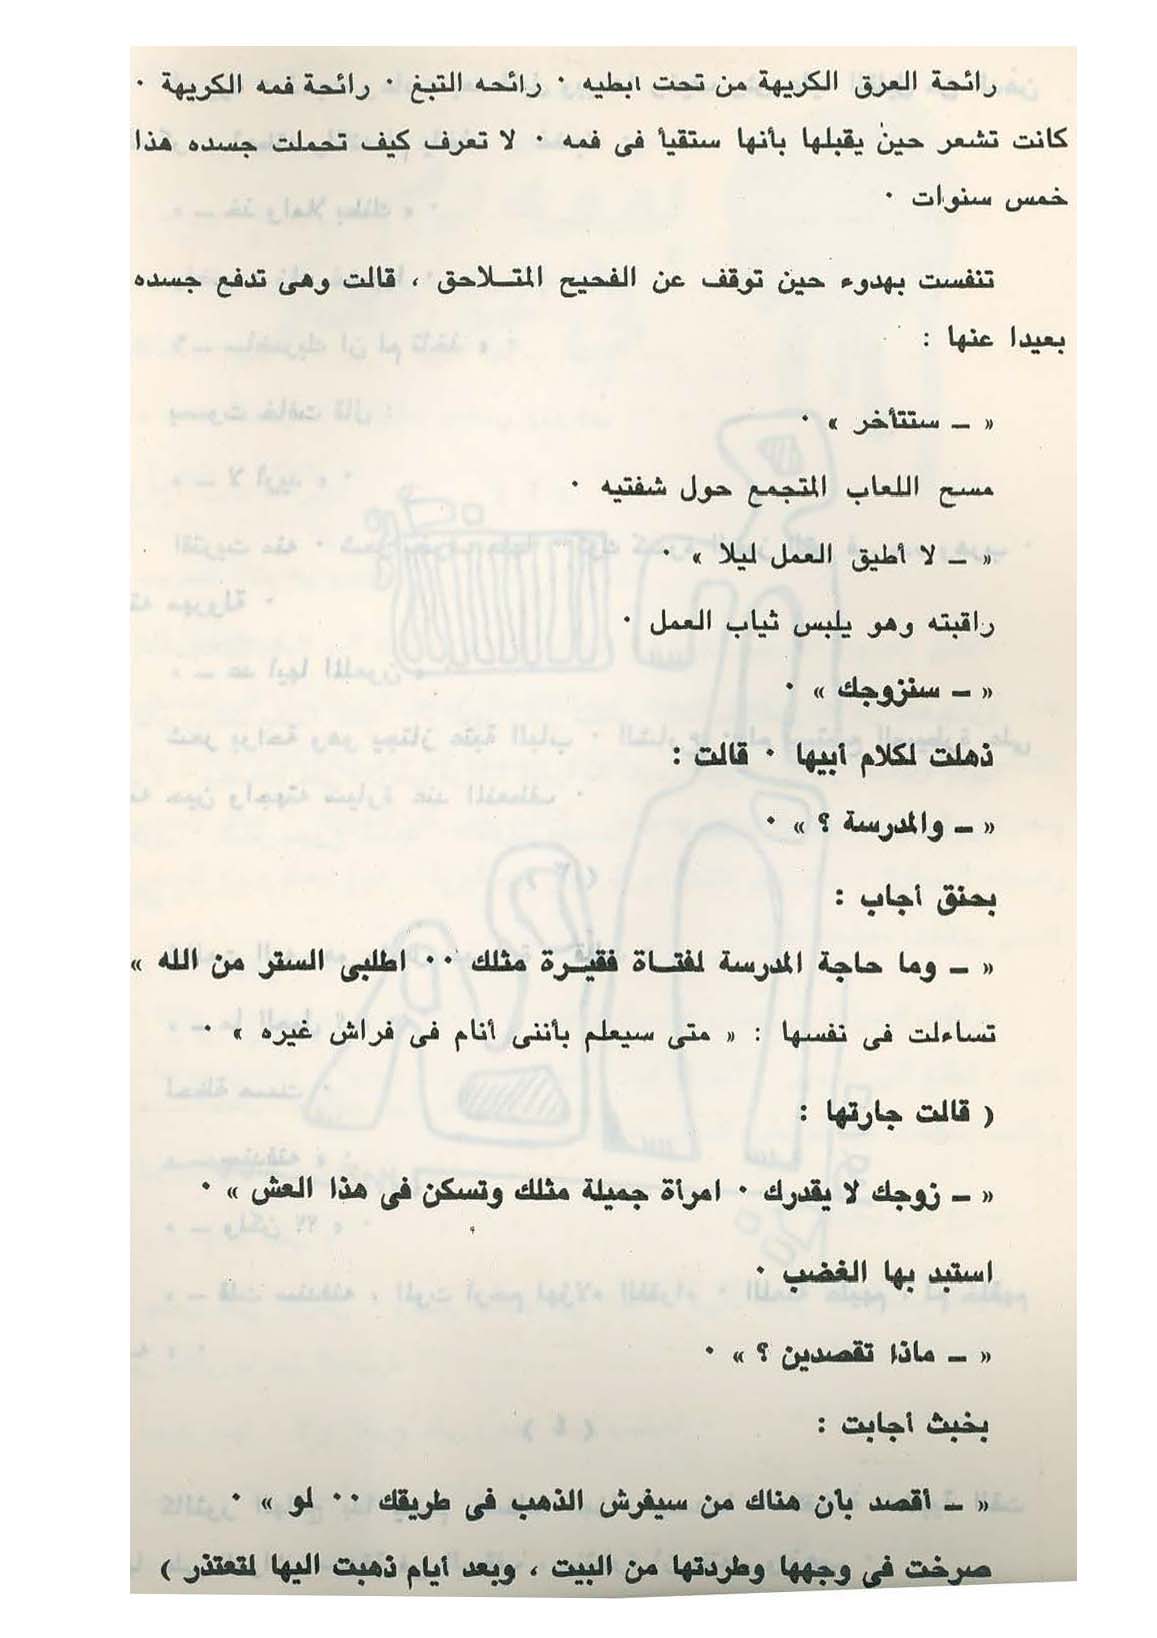 رائحة العرق الكريهة من تحت ابطيه ٠ رائحه التبغ ٠ رائحة فمه الكريهة ٠
كانت تشعر حين يقبلها بأنها ستقيأ فى فمه ٠ لا تعرف كيف تحملت جسده هذا
خمس سنوات ٠
تنفست بهدوء حين توقف عن الفحيح المتـلاحق ، قالت وهى تدفع جسده
بعيدا عنها :
« ــ ستتأخر » ٠
مسح اللعاب المتجمع حول شفتيه ٠
« ــ لا أطيق العمل ليلا » ٠
راقبته وهو يلبس ثياب العمل ٠
« ــ سنزوجك » ٠
ذهلت لكلام أبيها ٠ قالت :
« ــ والمدرسة ؟ » ٠
بحنق أجاب :
« ــ وما حاجة المدرسة لفتـاة فقيـرة مثلك ٠٠ اطلبى الستر من الله »
تساءلت فى نفسها : « متى سيعلم بأننى أنام فى فراش غيره » ٠
( قالت جارتها :
« ــ زوجك لا يقدرك ٠ امرأة جميلة مثلك وتسكن فى هذا العش » ٠
استبد بها الغضب ٠
« ــ ماذا تقصدين ؟ » ٠
بخبث أجابت :
« ــ أقصد بأن هناك من سيفرش الذهب فى طريقك ٠٠ لو » ٠
صرخت فى وجهها وطردتها من البيت ، وبعد أيام ذهبت اليها لتعتذر )